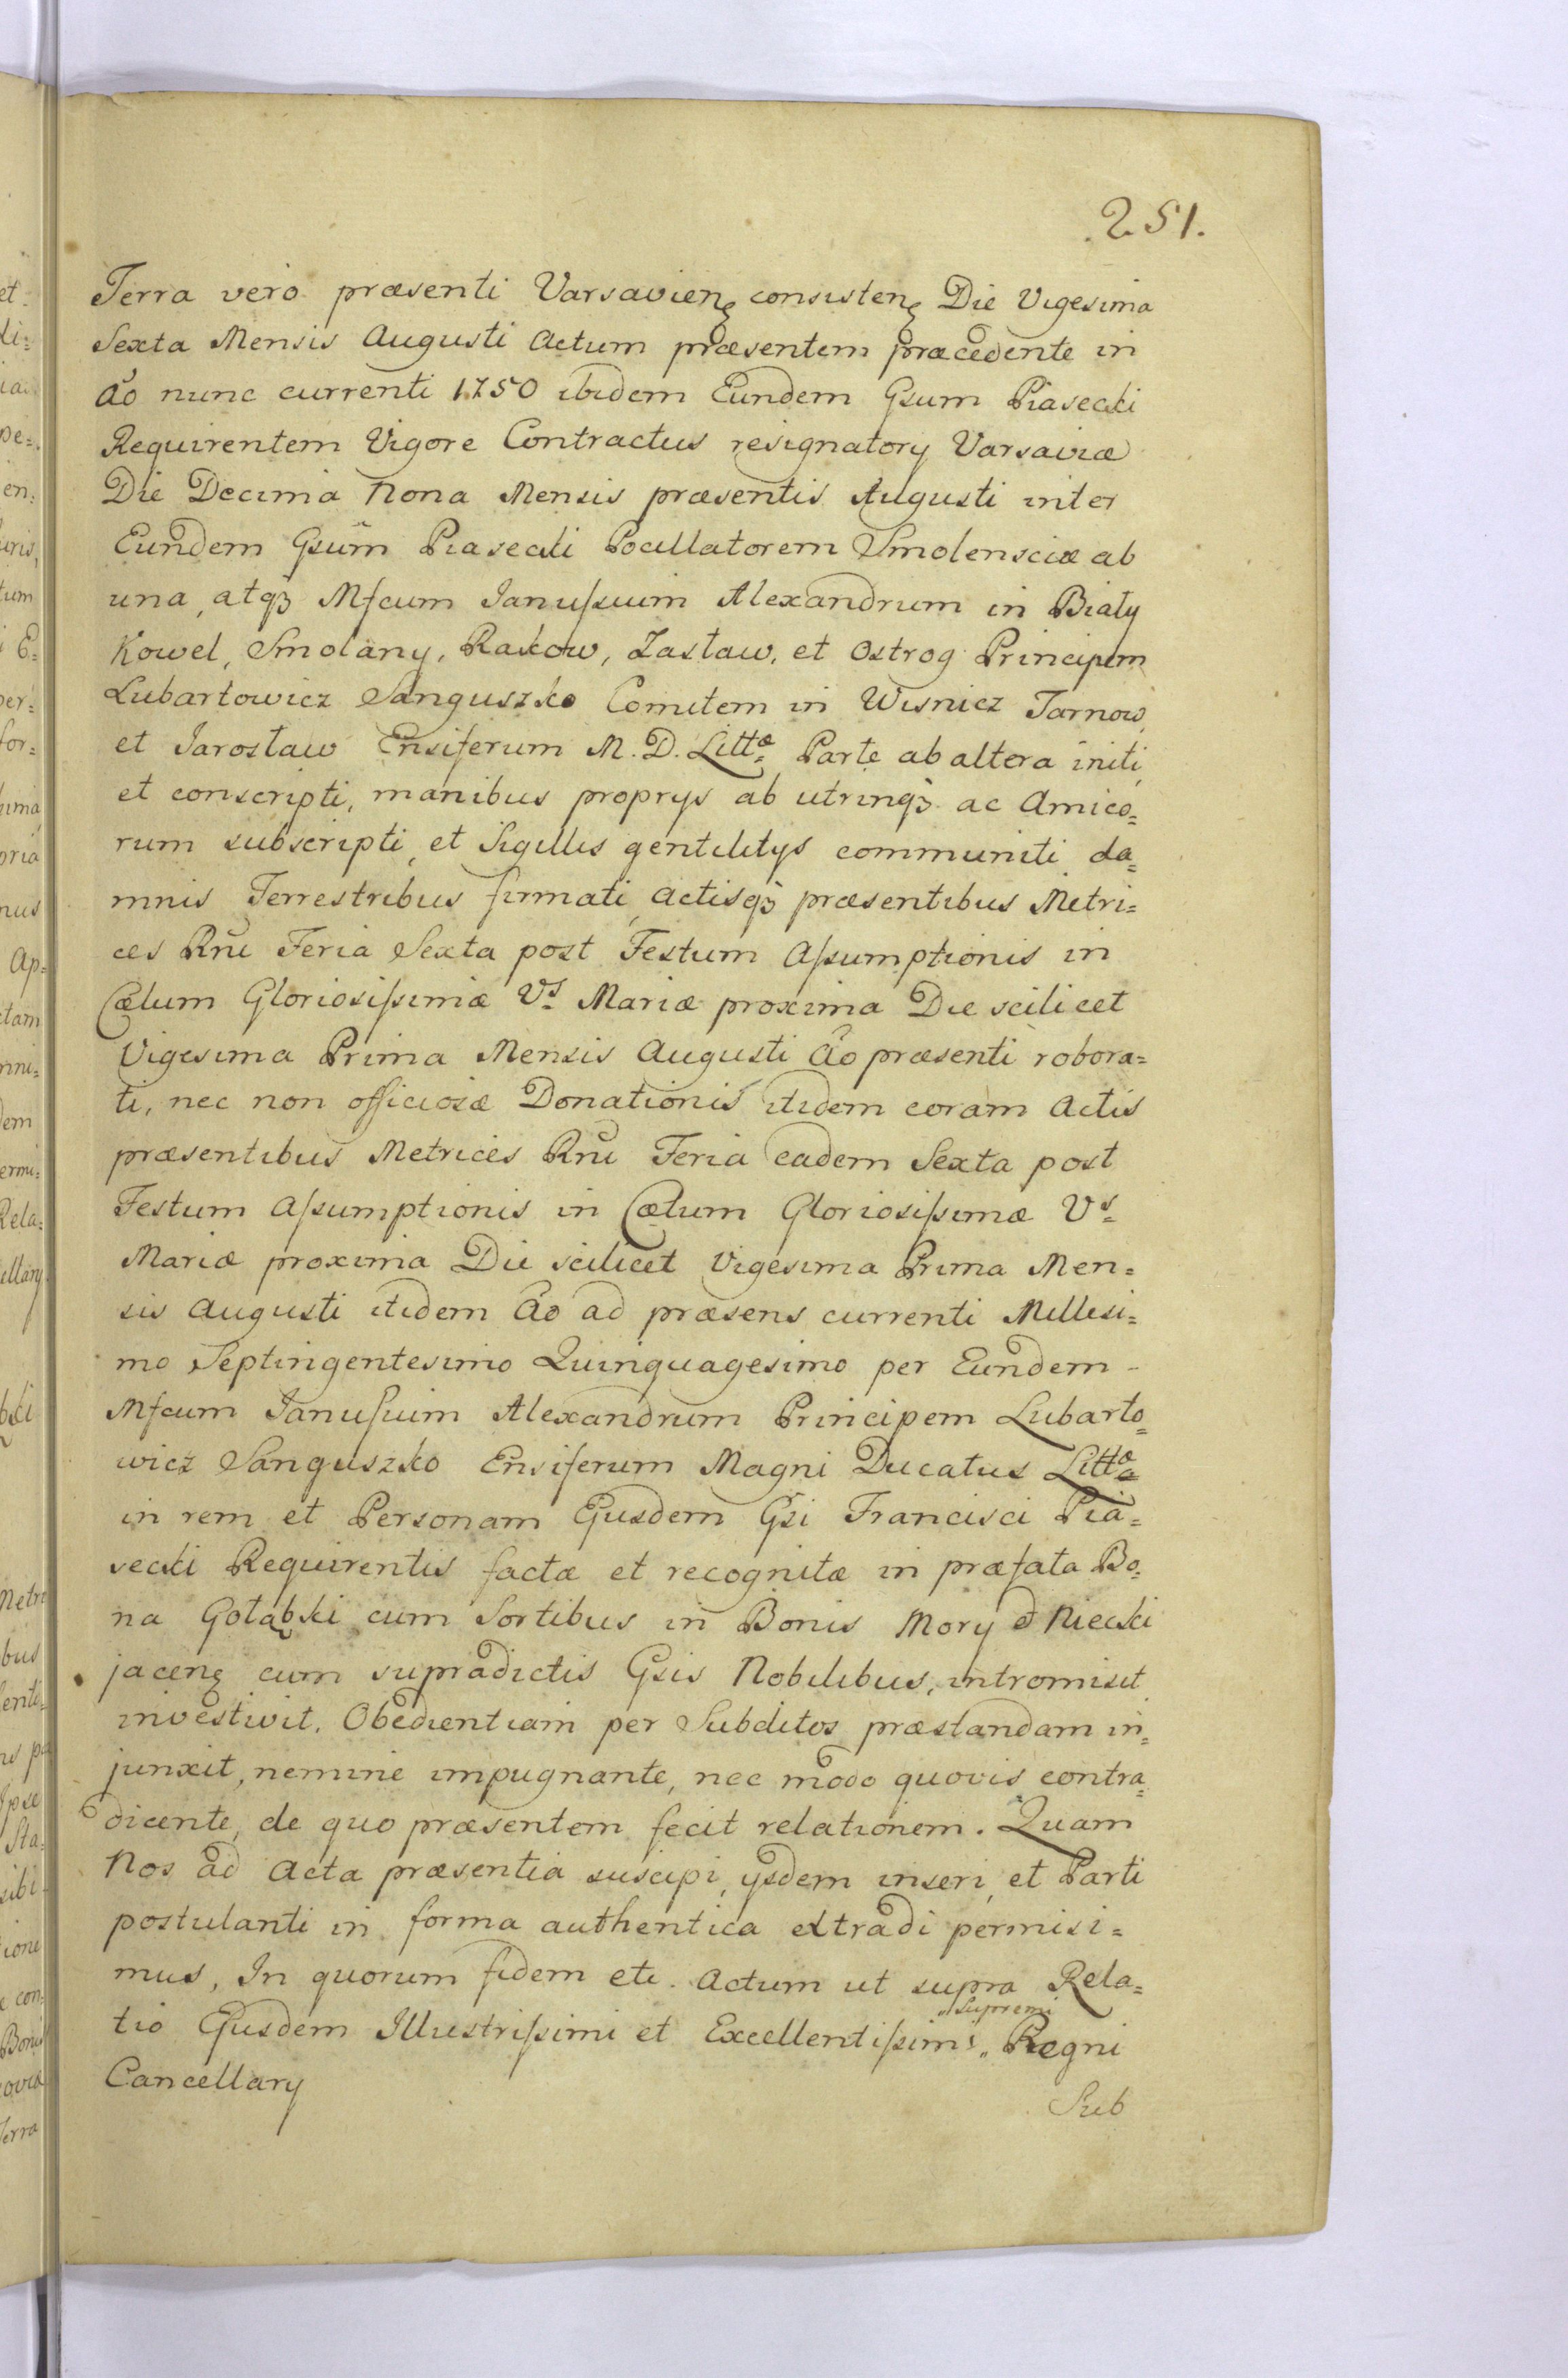 251.
Terra vero præsenti Varsavieñ consisteñ Die Vigesima
Sexta Mensis Augusti Actum præsentem præcedente in
Aö nunc currenti 1750 ibidem Eundem Gsum Piasecki
Requirentem Vigore Contractus resignatory Varsaviæ
Die Decima Nona Mensis præsentis Augusti inter
Eundem Gsum̃ Piasecki Pocillatorem Smolensciæ ab
una, atqꝫ Mfcum Januſsium Alexandrum in Biały
Kowel, Smolany, Rakow, Zasław, et Ostrog Principem
Lubartowicz Sanguszko Comitem in Wisnicz Tarnow,
et Jarosław Ensiferum M. D. Littæ Parte ab altera initi,
et conscripti, manibus proprys ab utrinqꝫ ac Amico=
rum subscripti, et Sigillis gentilitys communiti da=
mnis Terrestribus firmati, Actisqꝫ præsentibus Metri=
ces Rni Feria Sexta post Festum Aſsumptionis in
Cœlum Gloriosiſsimæ Vs Mariæ proxima Die scilicet
Vigesima Prima Mensis Augusti Aö præsenti robora=
ti, nec non officiosæ Donationis itidem coram Actis
præsentibus Metrices Rni Feria eadem Sexta post
Festum Aſsumptionis in Cœlum Gloriosiſsimæ Vs
Mariæ proxima Die scilicet Vigesima Prima Men=
sis Augusti itidem Aö ad præsens currenti Millesi=
mo Septingentesimo Quinquagesimo per Eundem -
Mfcum Januſsium Alexandrum Principem Lubarto=
wicz Sanguszko Ensiferum Magni Ducatus Littæ
in rem et Personam Ejusdem Gsi Francisci Pia=
secki Requirentis factæ et recognitæ in præfata Bo=
na Gołąbki cum Sortibus in Bonis Mory et Niecki
jaceñ cum supradictis Gsis Nobilibus, intromisit
investivit, Obedientiam per Subditos præstandam in=
junxit, nemine impugnante, nec modo quovis contra=
dicente, de quo præsentem fecit relationem. Quam
Nos ad Acta præsentia suscipi, ysdem inseri, et Parti
postulanti in forma authentica extradi permisi=
mus, In quorum fidem etc. Actum ut supra Rela=
tio Ejusdem Illustriſsimi et Excellentiſsimi „Supremi„ Regni
Cancellary
Sub